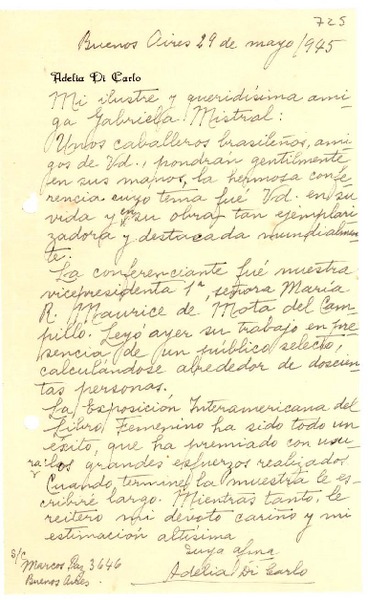 725
Buenos Aires 29 de mayo/945
Adelia Di Carlo
Mi ilustre y queridísima ami-
ga Gabriela Mistral:
Unos caballeros brasileños, ami-
gos de Vd., pondran gentilmente
en sus manos, la hermosa confe-
rencia cuyo tema fué Vd. en su
vida y en su obra tan ejemplari-
zadora y destacada mundialmen-
te.
La conferenciante fué nuestra
vicepresidenta 1ª, señora María
R. Maurice de Mota del Cam-
pillo. Leyó ayer su trabajo en pre-
sencia de un público selecto,
calculándose alrededor de doscien-
tas personas.
La Exposición Interamericana del
Libro Femenino ha sido todo un
éxito, que ha premiado con usu-
ra los grandes esfuerzos realizados
Cuando termine la muestra le es-
cribiré largo. Mientras tanto, le
reitero mi devoto cariño y mi
estimación altísima
suya afma
Adelia Di Carlo
s/c
Marcos Paz 3646
Buenos Aires.